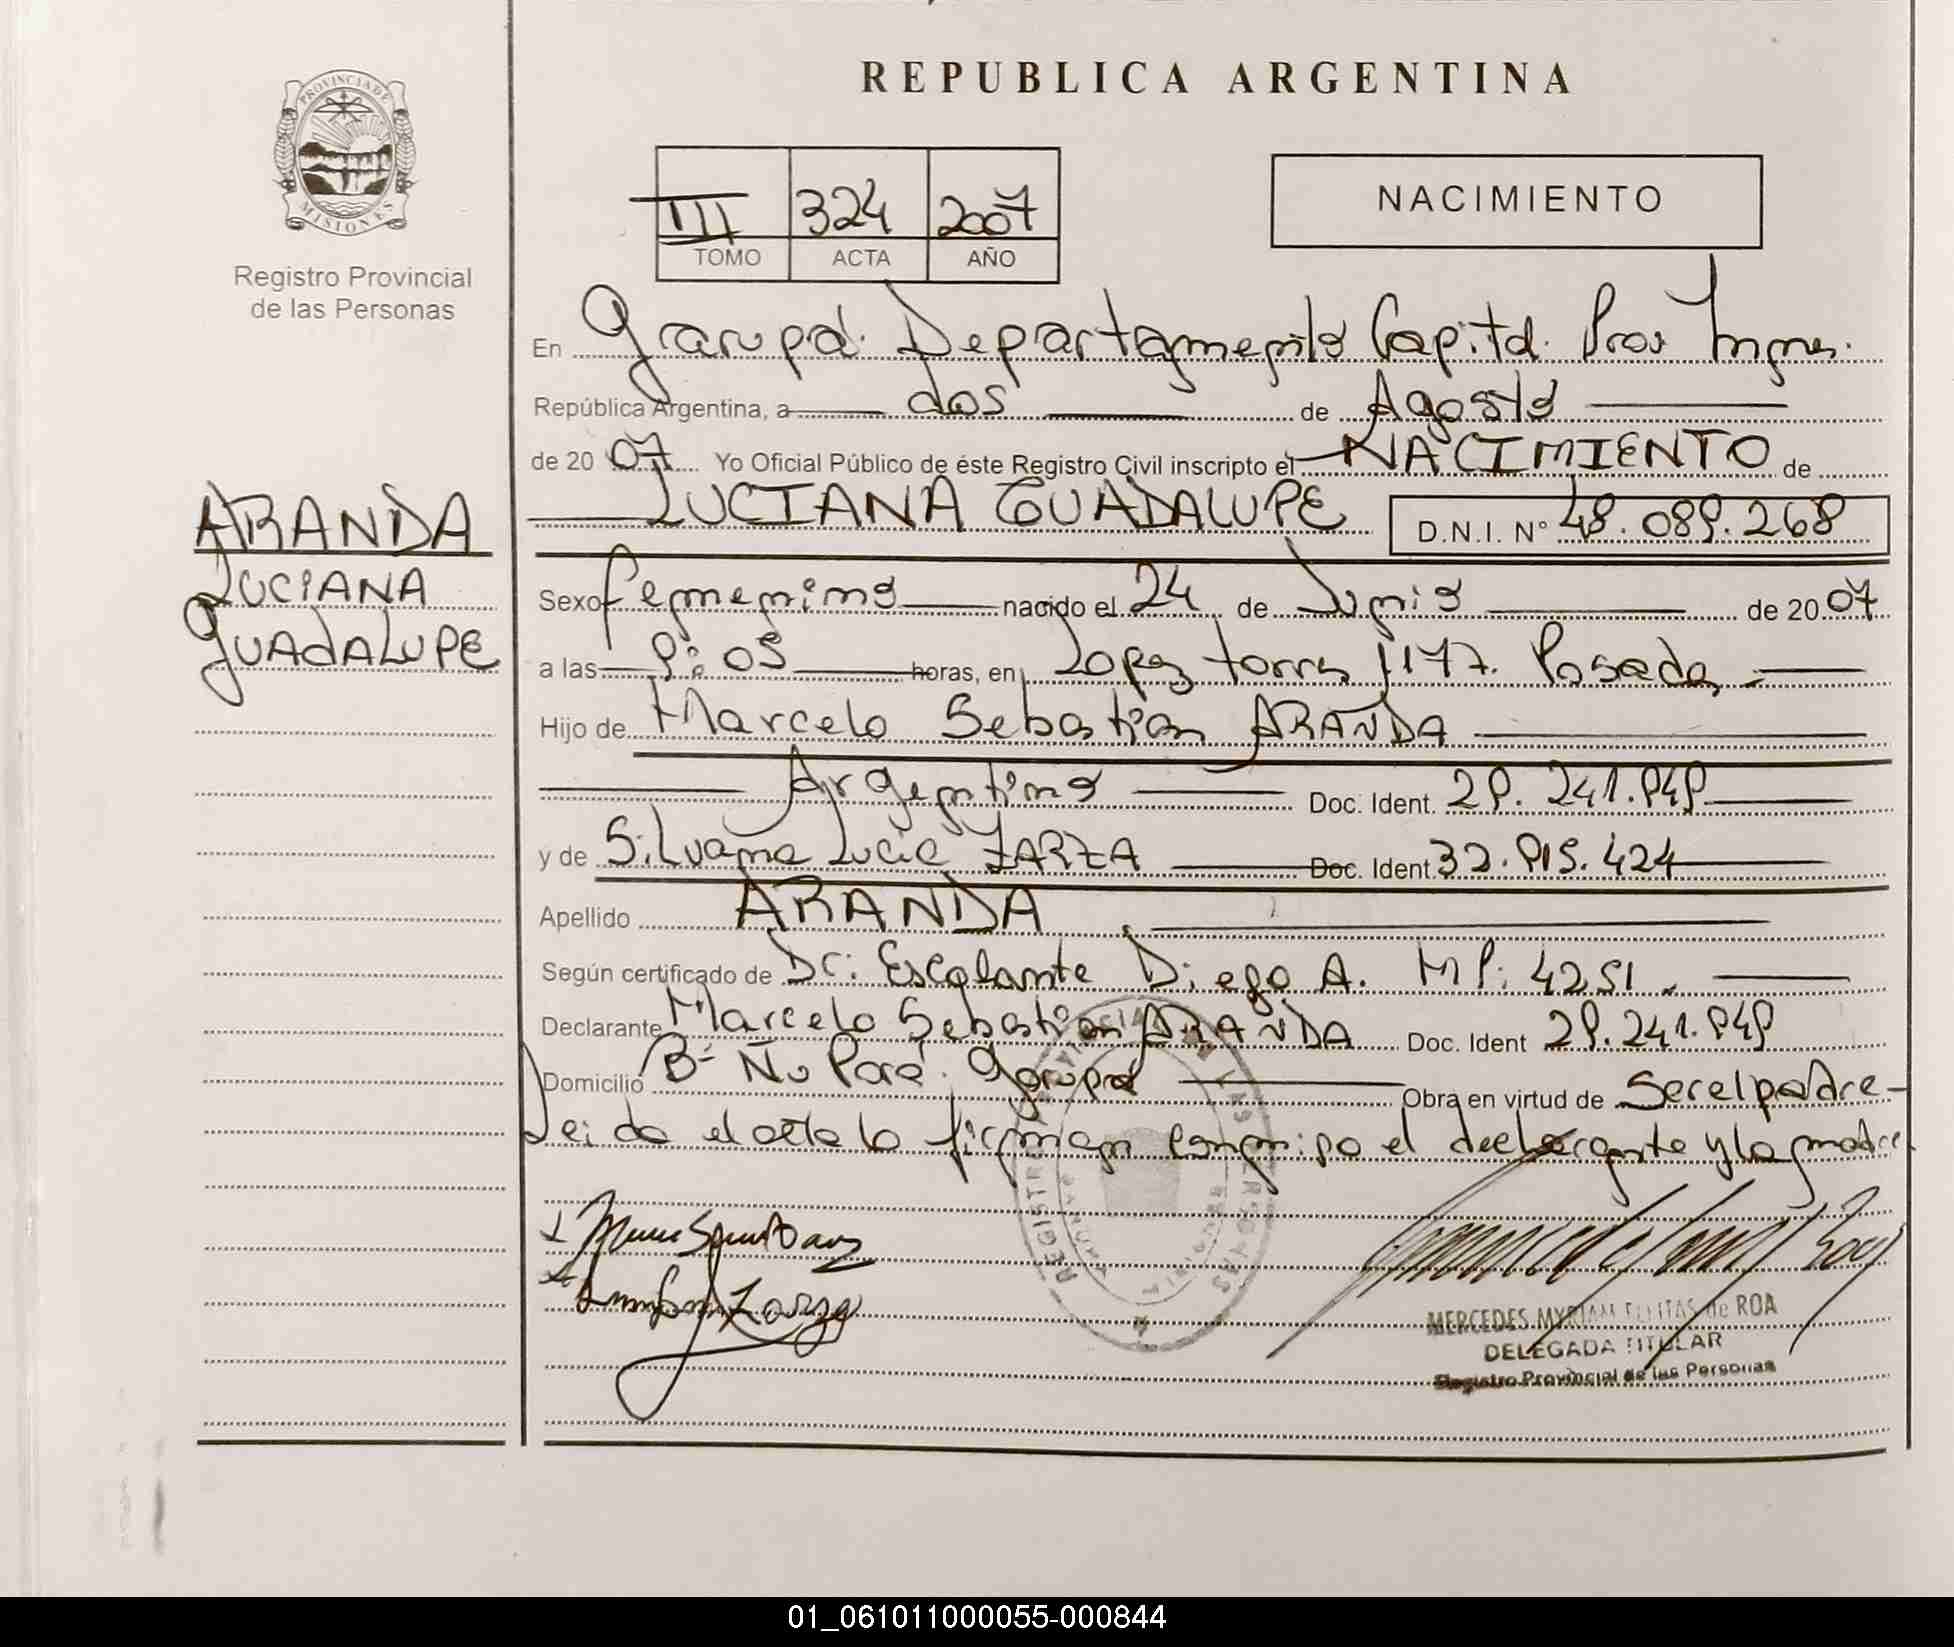 REPUBLICA ARGENTINA
PROVINCIA DE MISIONES
Registro Provincial
de las Personas
III 324 2007
TOMO ACTA AÑO
NACIMIENTO
En Garupá. Departamento Capital. Prov
República Argentina, a dos de Agosto
de 2007 Yo Oficial Público de éste Registro Civil inscripto el NACIMIENTO de
LUCIANA GUADALUPE D.N.I. Nº 48.089.268
ARANDA
LUCIANA
GUADALUPE
Sexo femenino nacido el 24 de Junio de 2007
a las 9:05 horas, en Lopez torres 1177. Posadas
Hijo de Marcelo Sebastian ARANDA
Argentino Doc. Ident. 29.241.949
y de Silvana Lucia ZARZA Doc. Ident 32.915.424
Apellido ARANDA
Según certificado de Dr: Escalante Diego A. MP: 4251.
Declarante Marcelo Sebastian ARANDA Doc. Ident 29.241.949
Domicilio Bº Ñu Porá. Garupá Obra en virtud de Ser el padre
Leida el acta la firman conmigo el declarante y la madre
Zarza
REGISTRO PROVINCIAL DE LAS PERSONAS
MISIONES
MERCEDES MYRIAM de ROA
DELEGADA TITULAR
Registro Provincial de las Personas
01_061011000055-000844